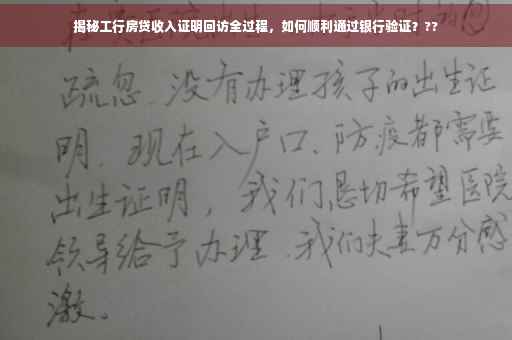 揭秘工行房贷收入证明回访全过程，如何顺利通过银行验证？??
疏忽.没有办理孩子的出生证
明.现在入户口、防疫都需要
出生证明，我们恳切希望医院
领导给予办理.我们夫妻万分感
激。